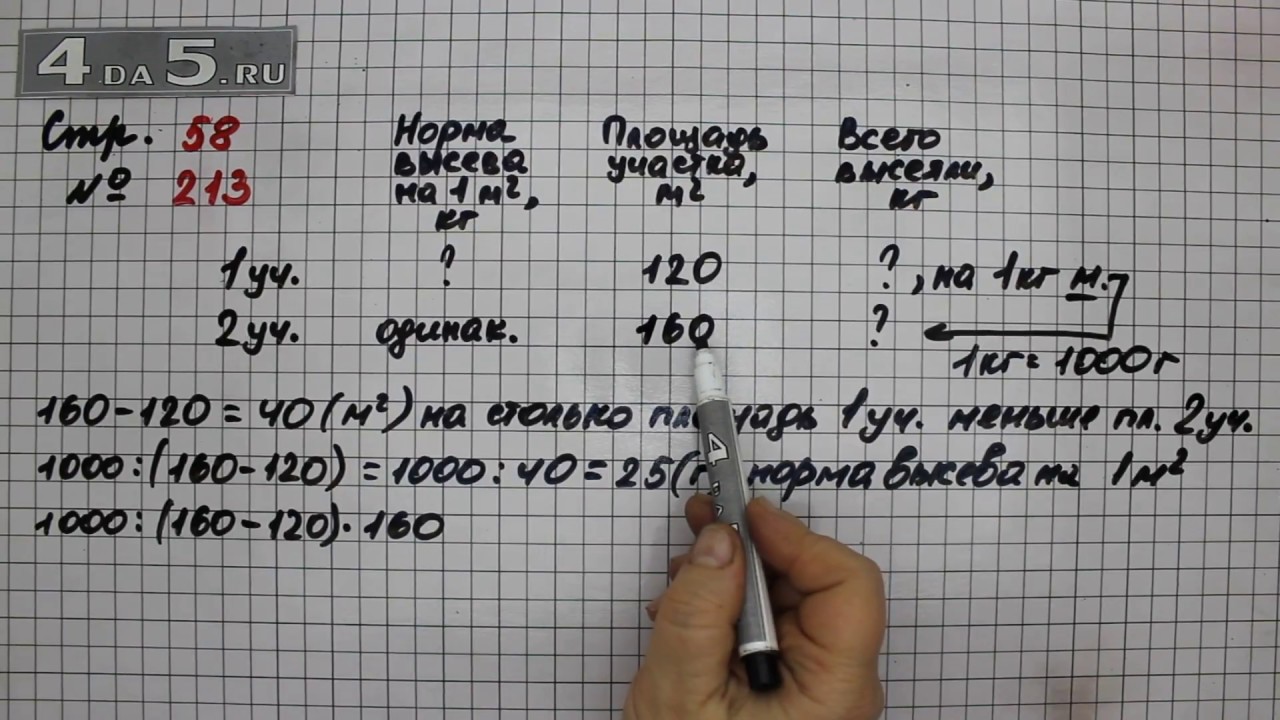 4DA5.RU
Стр. 58
№ 213
Норма высева на 1 м², кг
Площадь участка, м²
Всего высеяли, кг
1 уч. ? 120 ?, на 1 кг м.
2 уч. одинак. 160 ?
1 кг = 1000 г
160 - 120 = 40 (м²) на столько площадь 1 уч. меньше пл. 2 уч.
1000 : (160 - 120) = 1000 : 40 = 25 ( норма высева на 1 м²
1000 : (160 - 120) · 160
4